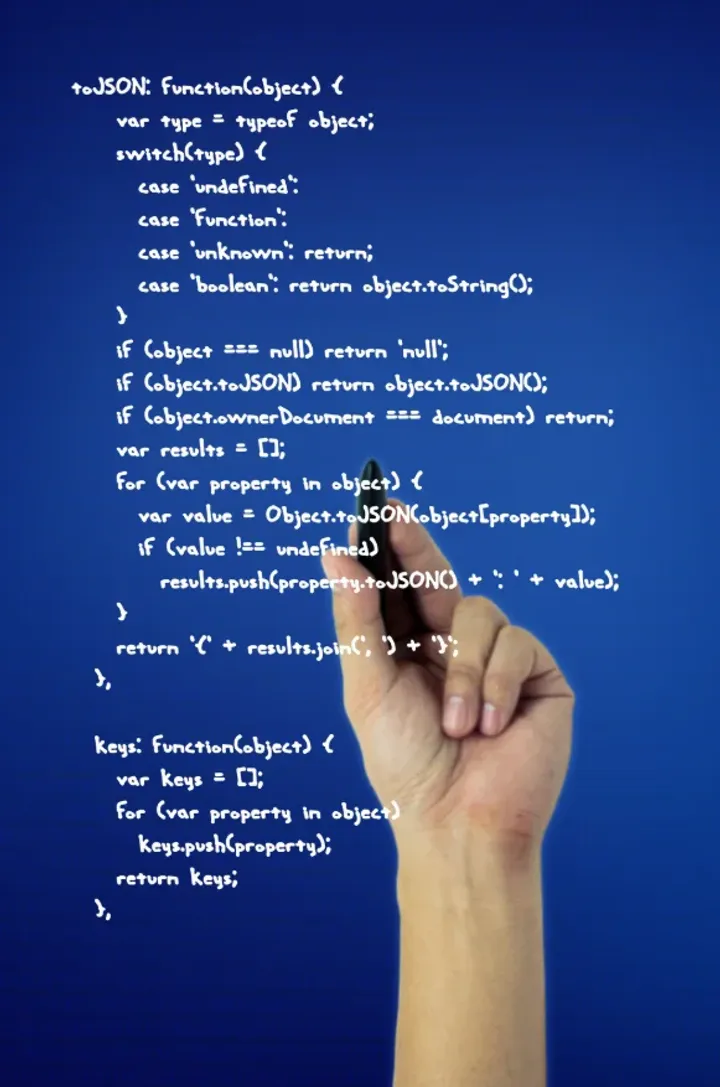 toJSON: function(object) {
var type = typeof object;
switch(type) {
case 'undefined':
case 'function':
case 'unknown': return;
case 'boolean': return object.toString();
}
if (object === null) return 'null';
if (object.toJSON) return object.toJSON();
if (object.ownerDocument === document) return;
var results = [];
for (var property in object) {
var value = Object.toJSON(object[property]);
if (value !== undefined)
results.push(property.toJSON() + ': ' + value);
}
return '{' + results.join(', ') + '}';
},
keys: function(object) {
var keys = [];
for (var property in object)
keys.push(property);
return keys;
},